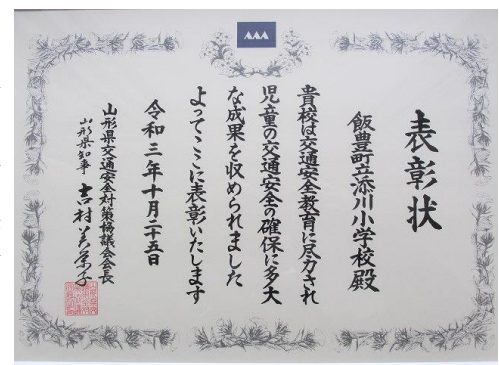 表彰状
飯豊町立添川小学校殿
貴校は交通安全教育に尽力され
児童の交通安全の確保に多大
な成果を収められました
よってここに表彰いたします
令和三年十月二十五日
山形県交通安全対策協議会会長
山形県知事 吉村美栄子